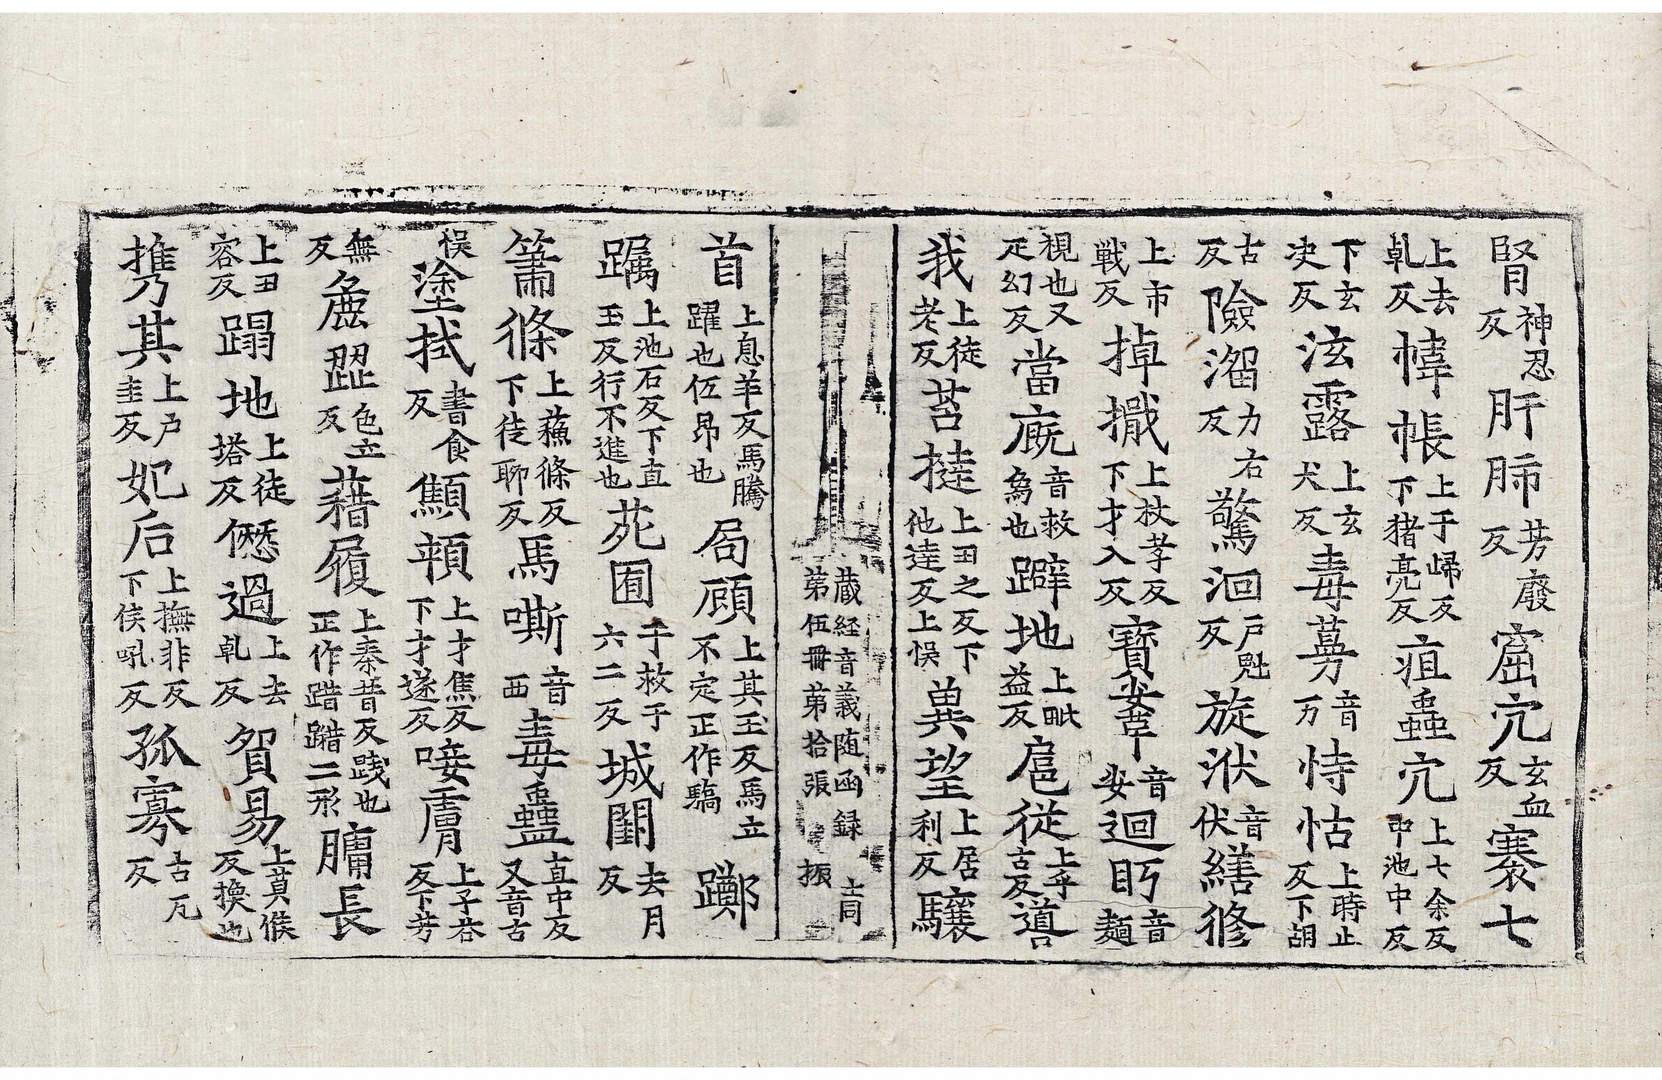 腎神忍反肝肺芳廢反窟穴玄血反褰七
上去乹反幃帳上于歸反下猪亮反疽蟲穴上七余反中池中反
下玄决反泫露上玄犬反毒蒡音万恃怙上時止反下胡
古反險溜力右反驚洄戸反旋洑音伏繕修
上市戰反掉撠上杖孝反下才入反寳
音迴眄音麵
視也又疋幻反當廐音救為也躃地上毗益反扈從上乎古反導
我上徒老反萻撻上田之反下他達反上悮兾望上居利反驤
藏経音義随函録第伍冊第拾張 振
首上息羊反馬騰躍也伍昂也局頋上其玉反馬立不定正作驕躑
躅上池石反下直玉反行不進也苑囿于救于六二反城闉去月反
簫條上蘓條反下徒聊反馬嘶音西毒蠱直中反又音古
悮塗拭書食反顦頼上才焦反下才遂反唼膚上子荅反下芳
無反麁澀色立反藉履上秦昔反践也正作踖二形膓長
上丑容反蹋地上徒塔反僽過上去乹反貿易上莫候反換也
携其上户圭反妃后上撫非反下侯吼反孤寡古瓦反